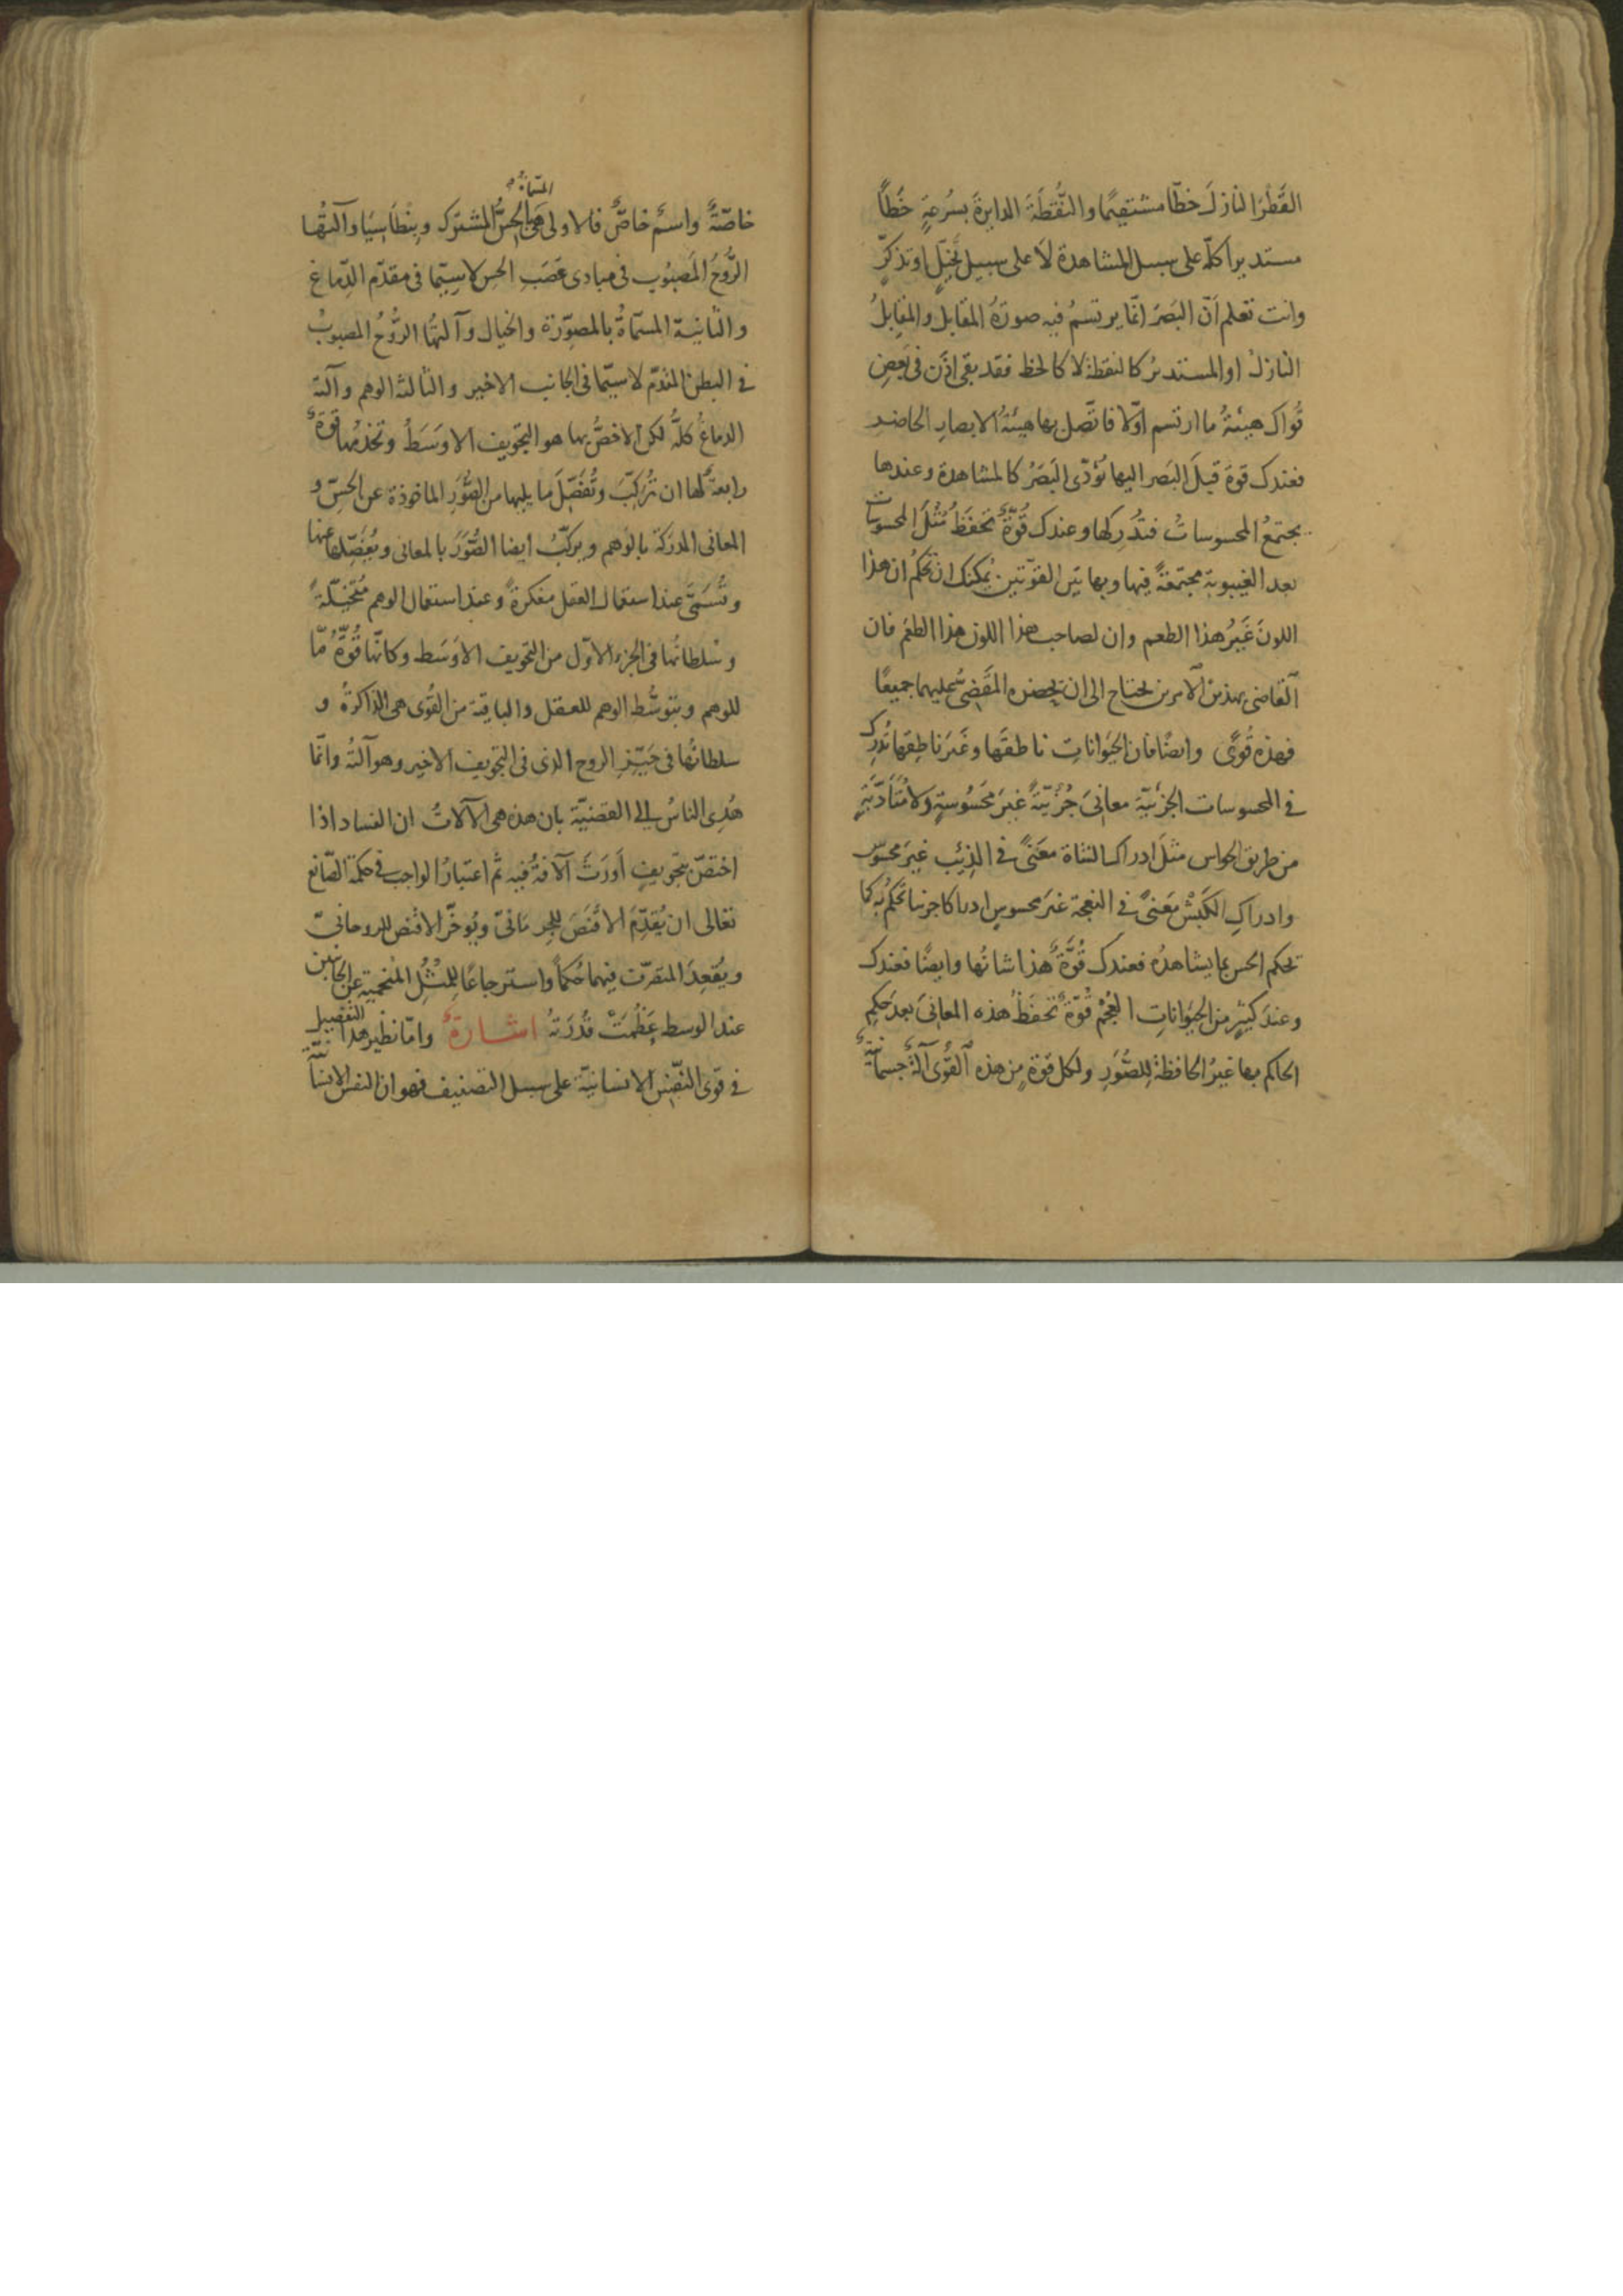 القَطْرَ النازلَ خطّا مستقيمًا والنُّقْطَةَ الدايرةَ بسُرعةٍ خَطّاً
مستديراً كلّه على سبيل المشاهدة لَا على سبيل تخيّلٍ او تذكّرٍ
وانت تعلم اَنّ البَصَرَ انّما يرتسمُ فيه صورَةُ المقابل والمقابلُ
النازلُ او المستديرُ كالنقطة لا كالخط فقد بقى اذَن فى بعضِ
قُواك هيئةُ ما ارتسم اوّلا فاتّصل بها هيئةُ الابصارِ الحاضرِ
فعندك قوة قبلَ البَصر اليها يُؤدّى البَصَرُ كالمشاهدة وعندها
يجتمعُ المحسوساتُ فتُدرِكها وعندك قُوّةٌ تحفَظُ مُثُلَ المحسوسات
بعد الغيبوبة مجتمعَةً فيها وبهاتين القوّتين يُمكنك ان تحكُم ان هذا
اللونَ غَيرُ هذا الطعم وان لصاحب هذا اللون هذا الطعم فان
القاضى بهذين الامرين يحتاج الى ان يحضره المقَضىُّ عليهما جميعًا
فهذه قُوًى وايضًا فان الحيَواناتِ ناطقَها وغَيرَ ناطِقِها تُدرِك
فى المحسوسات الجزئيّة معانِىَ جُزئيّةً غيرَ مَحسُوسةٍ ولا مُتَأَدّيَةٍ
من طريق الحواس مثلَ ادراك الشاة معنًى فى الذِئبِ غيرَ محسوس
وادراكِ الكَبْشِ مَعنًى فى النعجة غيرَ محسوسٍ ادراكا جزئيا تحكُم به كما
تحكم الحس بما يشاهدُه فعندك قُوَّةٌ هذا شانُها وايضًا فعندك
وعندَ كثيرٍ من الحيَواناتِ العُجْم قُوّةٌ تحفَظُ هذه المعانِىَ بعدَ حكمِ
الحاكم بها غيرُ الحافظة للصُّوَرِ ولكل قوة من هذه القُوَى آلةٌ جسمانيةٌ
خاصّةٌ واسمٌ خاصٌّ فالاولى هى المسمّاة بالحِسّ المشترَك وبِنْطَاسِيَا وآلتُها
الرُّوحُ المَصبُوب فى مبادى عَصَبِ الحس لاسيّما فى مقدّم الدِّماغ
والثانية المسمّاةُ بالمصوِّرة والخيال وآلتُها الرُّوحُ المصبوبُ
فى البطن المقدّم لاسيّما فى الجانب الاخير والثالثة الوهم وآلته
الدماغُ كلُّه لكن الاخصُّ بها هو التجويف الاوسَطُ وتخدُمُها قوةٌ
رابعةٌ لها ان تُركِّبَ وتُفَصّلَ ما يليها من الصُّوَرِ الماخوذة عن الحِسّ و
المعانى المدرَكة بالوهم ويركّبُ ايضا الصُّوَرَ بالمعانى ويُفصّلها عنها
وتُسمَّى عند استعمال العقل مفكرةً وعند استعمال الوهم مُتخيّلةً
وسُلطانُها فى الجزء الاوّل من التجويف الاوسَط وكانّها قُوّةٌ مّا
للوهم وبتوسُّط الوهم للعقل والباقية من القُوَى هى الذاكرةُ و
سلطانُها فى حَيّزِ الروح الذى فى التجويف الاخير وهو آلتُه وانّما
هُدِىَ الناسُ الى القضيّة بان هذه هى الآلاتُ ان الفساد اذا
اختصّ بتجويفٍ اَورَثَ الآفةَ فيه ثم اعتبارُ الواجب فى حكمة الصّانع
تعالى ان يُقدِّمَ الاقنَصَ للجرمانىّ ويُوخّرَ الاقنص للروحانىّ
ويُقعِدَ المتصرّف فيهما حُكماً واسترجاعًا للمُثُلِ المُنمحيةِ عن الجانبين
عند الوسط عَظُمَتْ قُدرَتُه اشارةٌ وامّا نظير هذا التفصيل
فى قوى النفسِ الانسانيّة على سبيل التصنيف فهو ان النفس الانسانيّة